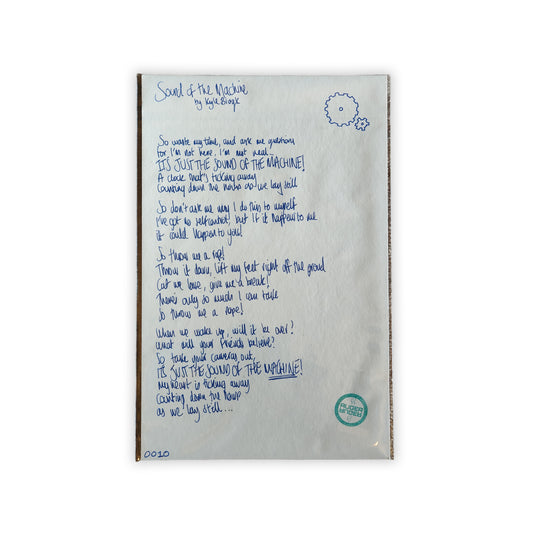 Sound of the Machine
by Kyle Brogk
So waste my time, and ask me questions
for I'm not here. I'm not real...
IT'S JUST THE SOUND OF THE MACHINE!
A clock that's ticking away
Counting down the hours as we lay still
So don't ask me why I do this to myself
I've got no self control! but if it happens to me
it could happen to you!
So throw me a rope!
Throw it down, lift my feet right off the ground
Cut me loose, give me a break!
There's only so much I can take
So throw me a rope!
When we wake up, will it be over?
What will your friends believe?
So take your cameras out,
IT'S JUST THE SOUND OF THE MACHINE!
My heart is ticking away
Counting down the hours
as we lay still...
RUDER
0010